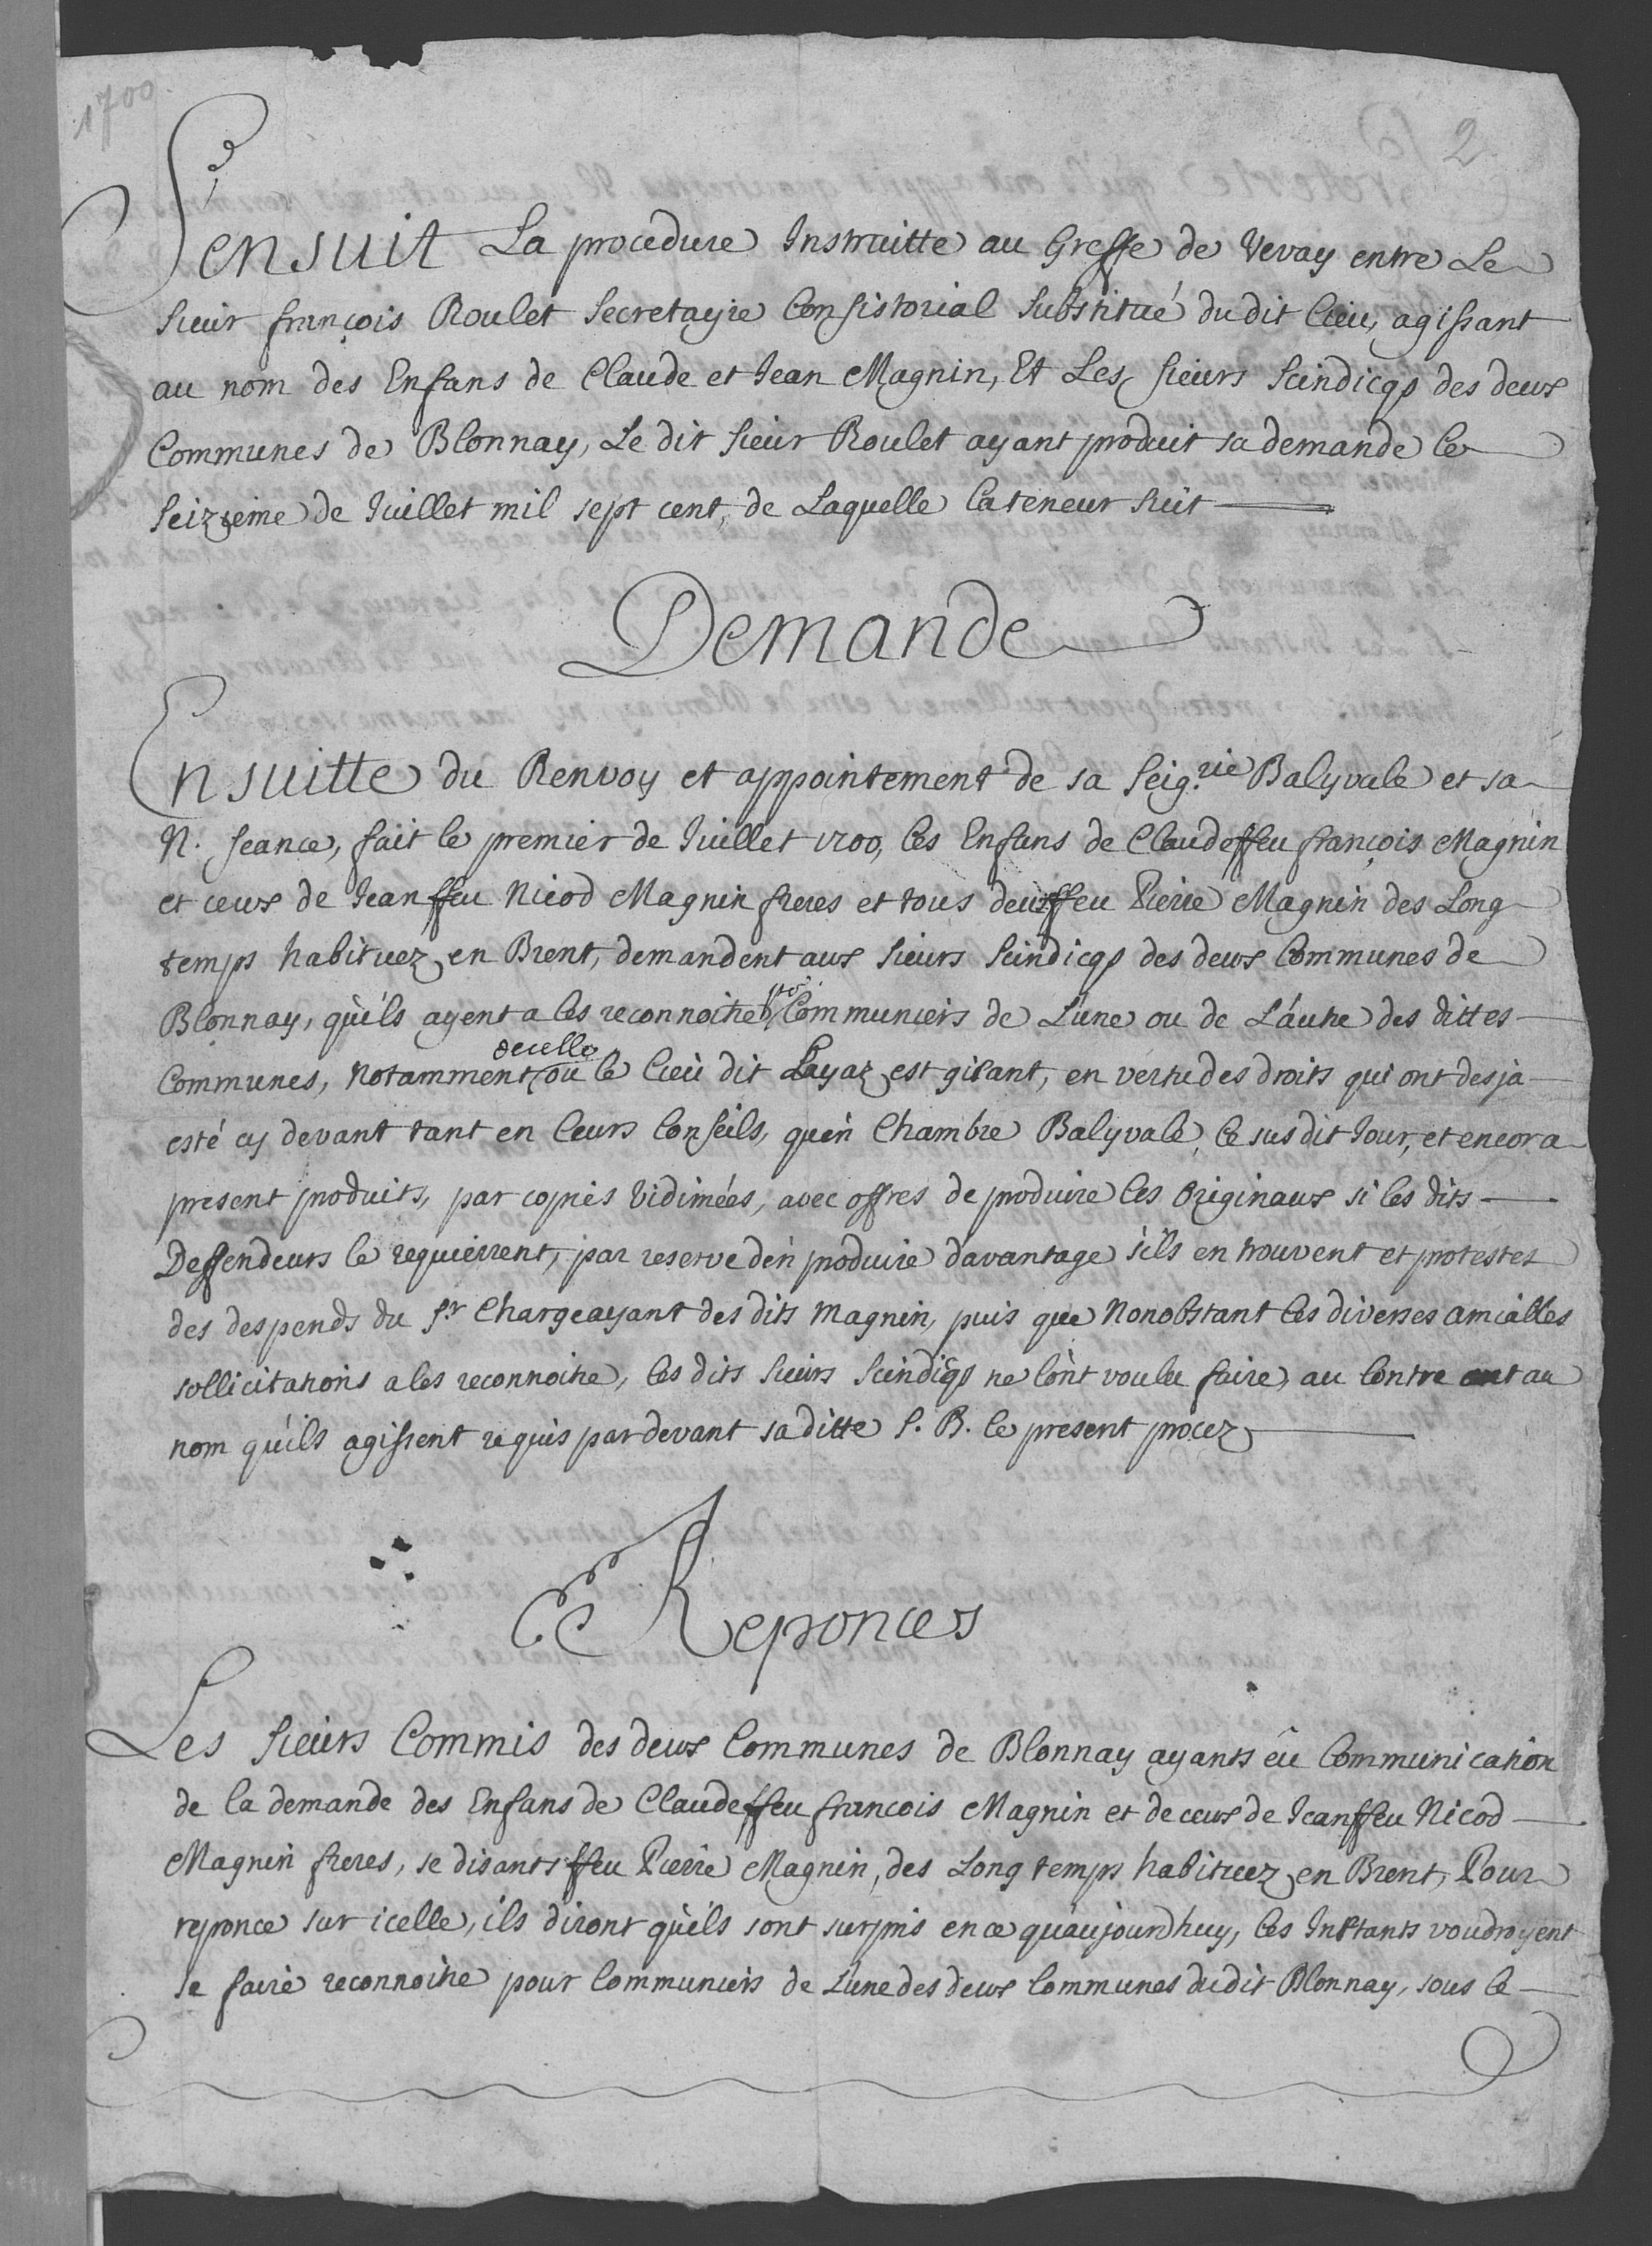 1700.
2
Sensuit La procedure Instruitte au Greffe de Vevay entre Le
sieur françois Roulet secretayre Consistorial substitué dudit lieu, agissant
au nom des Enfans de Claude et Jean Magnin, Et Les sieurs scindicqs des deux
Communes de Blonnay, Le dit sieur Roulet ayant produit sa demande le
seizieme de Juillet mil sept cent, de Laquelle la teneur suit
Demande
Ensuitte du Renvoy et appointement de sa Seig.rie Balyvale et sa
N. seance, fait le premier de Juillet 1700, les Enfans de Claude ffeu françois Magnin
et ceux de Jean ffeu Nicod Magnin freres et tous deux ffeu Pierre Magnin des Long
temps habituez en Brent, demandent aux sieurs scindicqs des deux Communes de
Blonnay, qu'ils ayent a les reconnoitre po.r Communiers de L'une ou de L'autre des dittes
Communes, notamment decelle ou le lieu dit Layaz est gisant, en vertu des droits qui ont desja
esté cy devant tant en leurs Conseils, qu'en Chambre Balyvale, le susdit Jour, et encor a
present produits, par copies vidimées, avec offres de produire les originaux si les dits
Deffendeurs le requierrent, par reserve d'en produire davantage s'ils en trouvent et protestes
des despends du S.r Chargeayant des dits Magnin, puis que Nonobstant les diverses amiables
sollicitations a les reconnoitre, les dits sieurs scindicqs ne l'ont voulu faire, au Contre ont au
nom qu'ils agissent requis pardevant sa ditte S. B. le present procez
Reponces
Les sieurs Commis des deux Communes de Blonnay ayants eu Communication
de la demande des Enfans de Claude ffeu francois Magnin et de ceux de Jean ffeu Nicod
Magnin freres, se disants ffeu Pierre Magnin, des Long temps habituez en Brent, Pour
reponce sur icelle, ils diront qu'ils sont surpris en ce qu'aujourdhuy, les Instants voudroyent
se faire reconnoitre pour Communiers de L'une des deux Communes dudit Blonnay, sous le